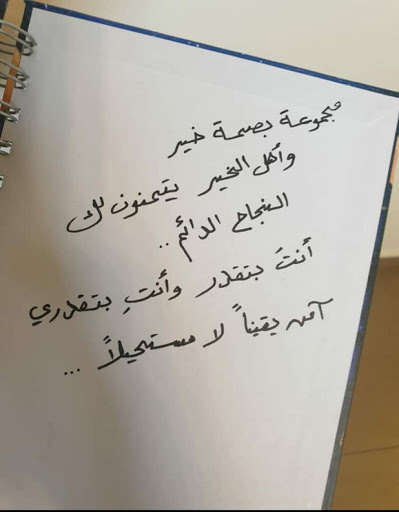 مجموعة بصمة خير
وأهل الخير يتمنون لك
النجاح الدائم ..
أنتَ بتقدر وأنتِ بتقدري
آمن يقيناً لا مستحيلاً ...